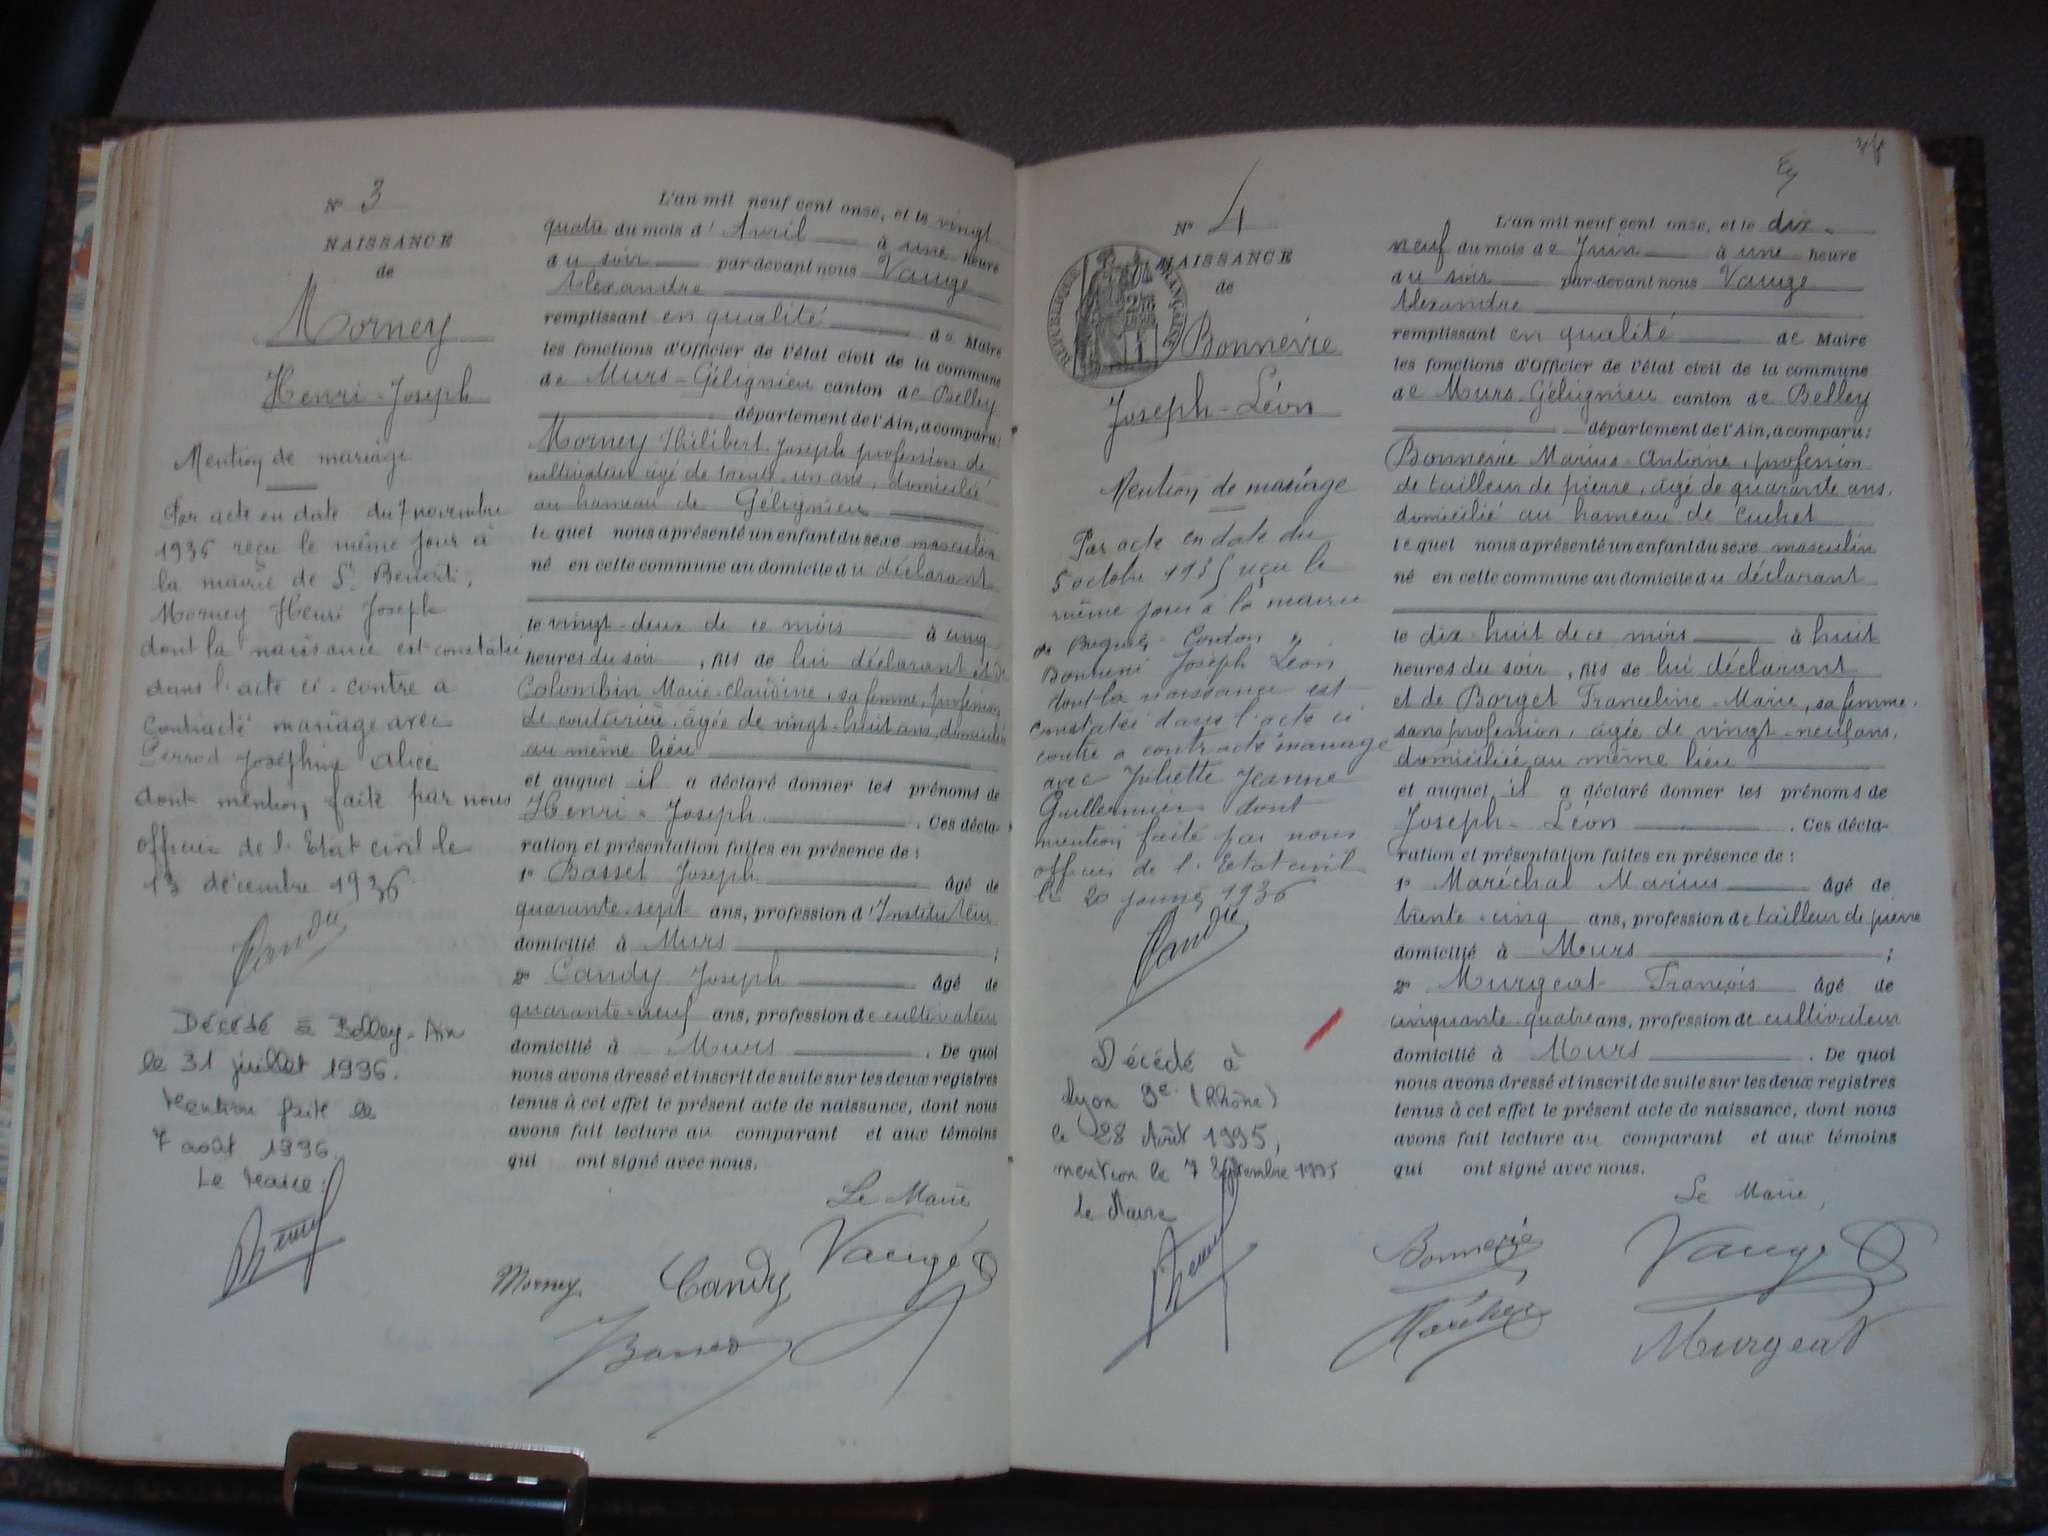 N° 3
NAISSANCE
de
Morney
Henri-Joseph
Mention de mariage
Par acte en date du 7 novembre
1936 reçu le même jour à
la mairie de St Benoit,
Morney Henri Joseph
dont la naissance est constatée
dans l'acte ci-contre a
contracté mariage avec
Perrod Joséphine Alice
dont mention faite par nous
officier de l'Etat civil le
13 décembre 1936
Candy
Décédé à Belley-Ain
le 31 juillet 1996.
Mention faite le
7 août 1996.
Le Maire:
L'an mil neuf cent onze, et le vingt
quatre du mois d'Avril à une heure
du soir par-devant nous Vaugé
Alexandre
remplissant en qualité de Maire
les fonctions d'Officier de l'état civil de la commune
de Murs-Gélignieu canton de Belley
département de l'Ain, a comparu:
Morney Philibert-Joseph profession de
cultivateur âgé de trente-un ans, domicilié
au hameau de Gélignieu
lequel nous a présenté un enfant du sexe masculin
né en cette commune au domicile du déclarant
le vingt-deux de ce mois à cinq
heures du soir, fils de lui déclarant et de
Colombin Marie-Claudine, sa femme, profession
de couturière, âgée de vingt-huit ans, domiciliée
au même lieu
et auquel il a déclaré donner les prénoms de
Henri-Joseph. Ces décla-
ration et présentation faites en présence de:
1° Basset Joseph âgé de
quarante-sept ans, profession d'Instituteur
domicilié à Murs;
2° Candy Joseph âgé de
quarante-neuf ans, profession de cultivateur
domicilié à Murs. De quoi
nous avons dressé et inscrit de suite sur les deux registres
tenus à cet effet le présent acte de naissance, dont nous
avons fait lecture au comparant et aux témoins
qui ont signé avec nous.
Le Maire
Vaugé
Morney Candy
Basset
N° 4
NAISSANCE
de
RÉPUBLIQUE FRANÇAISE
Bonnevie
Joseph-Léon
Mention de mariage
Par acte en date du
5 octobre 1935 reçu le
même jour à la mairie
de Brégnier-Cordon,
Bonnevie Joseph Léon
dont la naissance est
constatée dans l'acte ci
contre a contracté mariage
avec Juliette Jeanne
Guillermin dont
mention faite par nous
officier de l'Etat civil
le 20 janvier 1936
Candy
Décédé à
Lyon 9e (Rhône)
le 28 Août 1995,
mention le 7 Septembre 1995
Le Maire
L'an mil neuf cent onze, et le dix-
neuf du mois de Juin à une heure
du soir par-devant nous Vaugé
Alexandre
remplissant en qualité de Maire
les fonctions d'Officier de l'état civil de la commune
de Murs-Gélignieu canton de Belley
département de l'Ain, a comparu:
Bonnevie Marius-Antoine, profession
de tailleur de pierre, âgé de quarante ans,
domicilié au hameau de Cuchet
lequel nous a présenté un enfant du sexe masculin
né en cette commune au domicile du déclarant
le dix-huit de ce mois à huit
heures du soir, fils de lui déclarant
et de Borget Franceline-Marie, sa femme,
sans profession, âgée de vingt-neuf ans,
domiciliée au même lieu
et auquel il a déclaré donner les prénoms de
Joseph-Léon. Ces décla-
ration et présentation faites en présence de:
1° Maréchal Marius âgé de
trente-cinq ans, profession de tailleur de pierre
domicilié à Murs;
2° Murgeat François âgé de
cinquante-quatre ans, profession de cultivateur
domicilié à Murs. De quoi
nous avons dressé et inscrit de suite sur les deux registres
tenus à cet effet le présent acte de naissance, dont nous
avons fait lecture au comparant et aux témoins
qui ont signé avec nous.
Le Maire,
Bonnevie Vaugé
Maréchal Murgeat